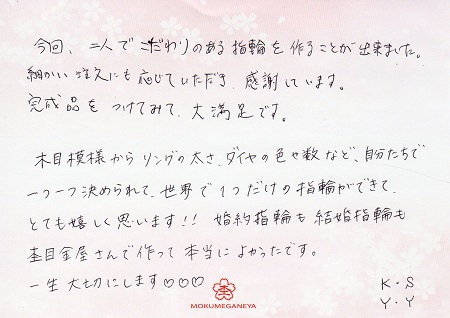 今回、二人でこだわりのある指輪を作ることが出来ました。
細かい注文にも応じていただき、感謝しています。
完成品をつけてみて、大満足です。
木目模様からリングの太さ、ダイヤの色や数など、自分たちで
一つ一つ決められて、世界で1つだけの指輪ができて、
とても嬉しく思います!! 婚約指輪も結婚指輪も
杢目金屋さんで作って本当によかったです。
一生大切にします♡♡♡
K・S
Y・Y
MOKUMEGANEYA